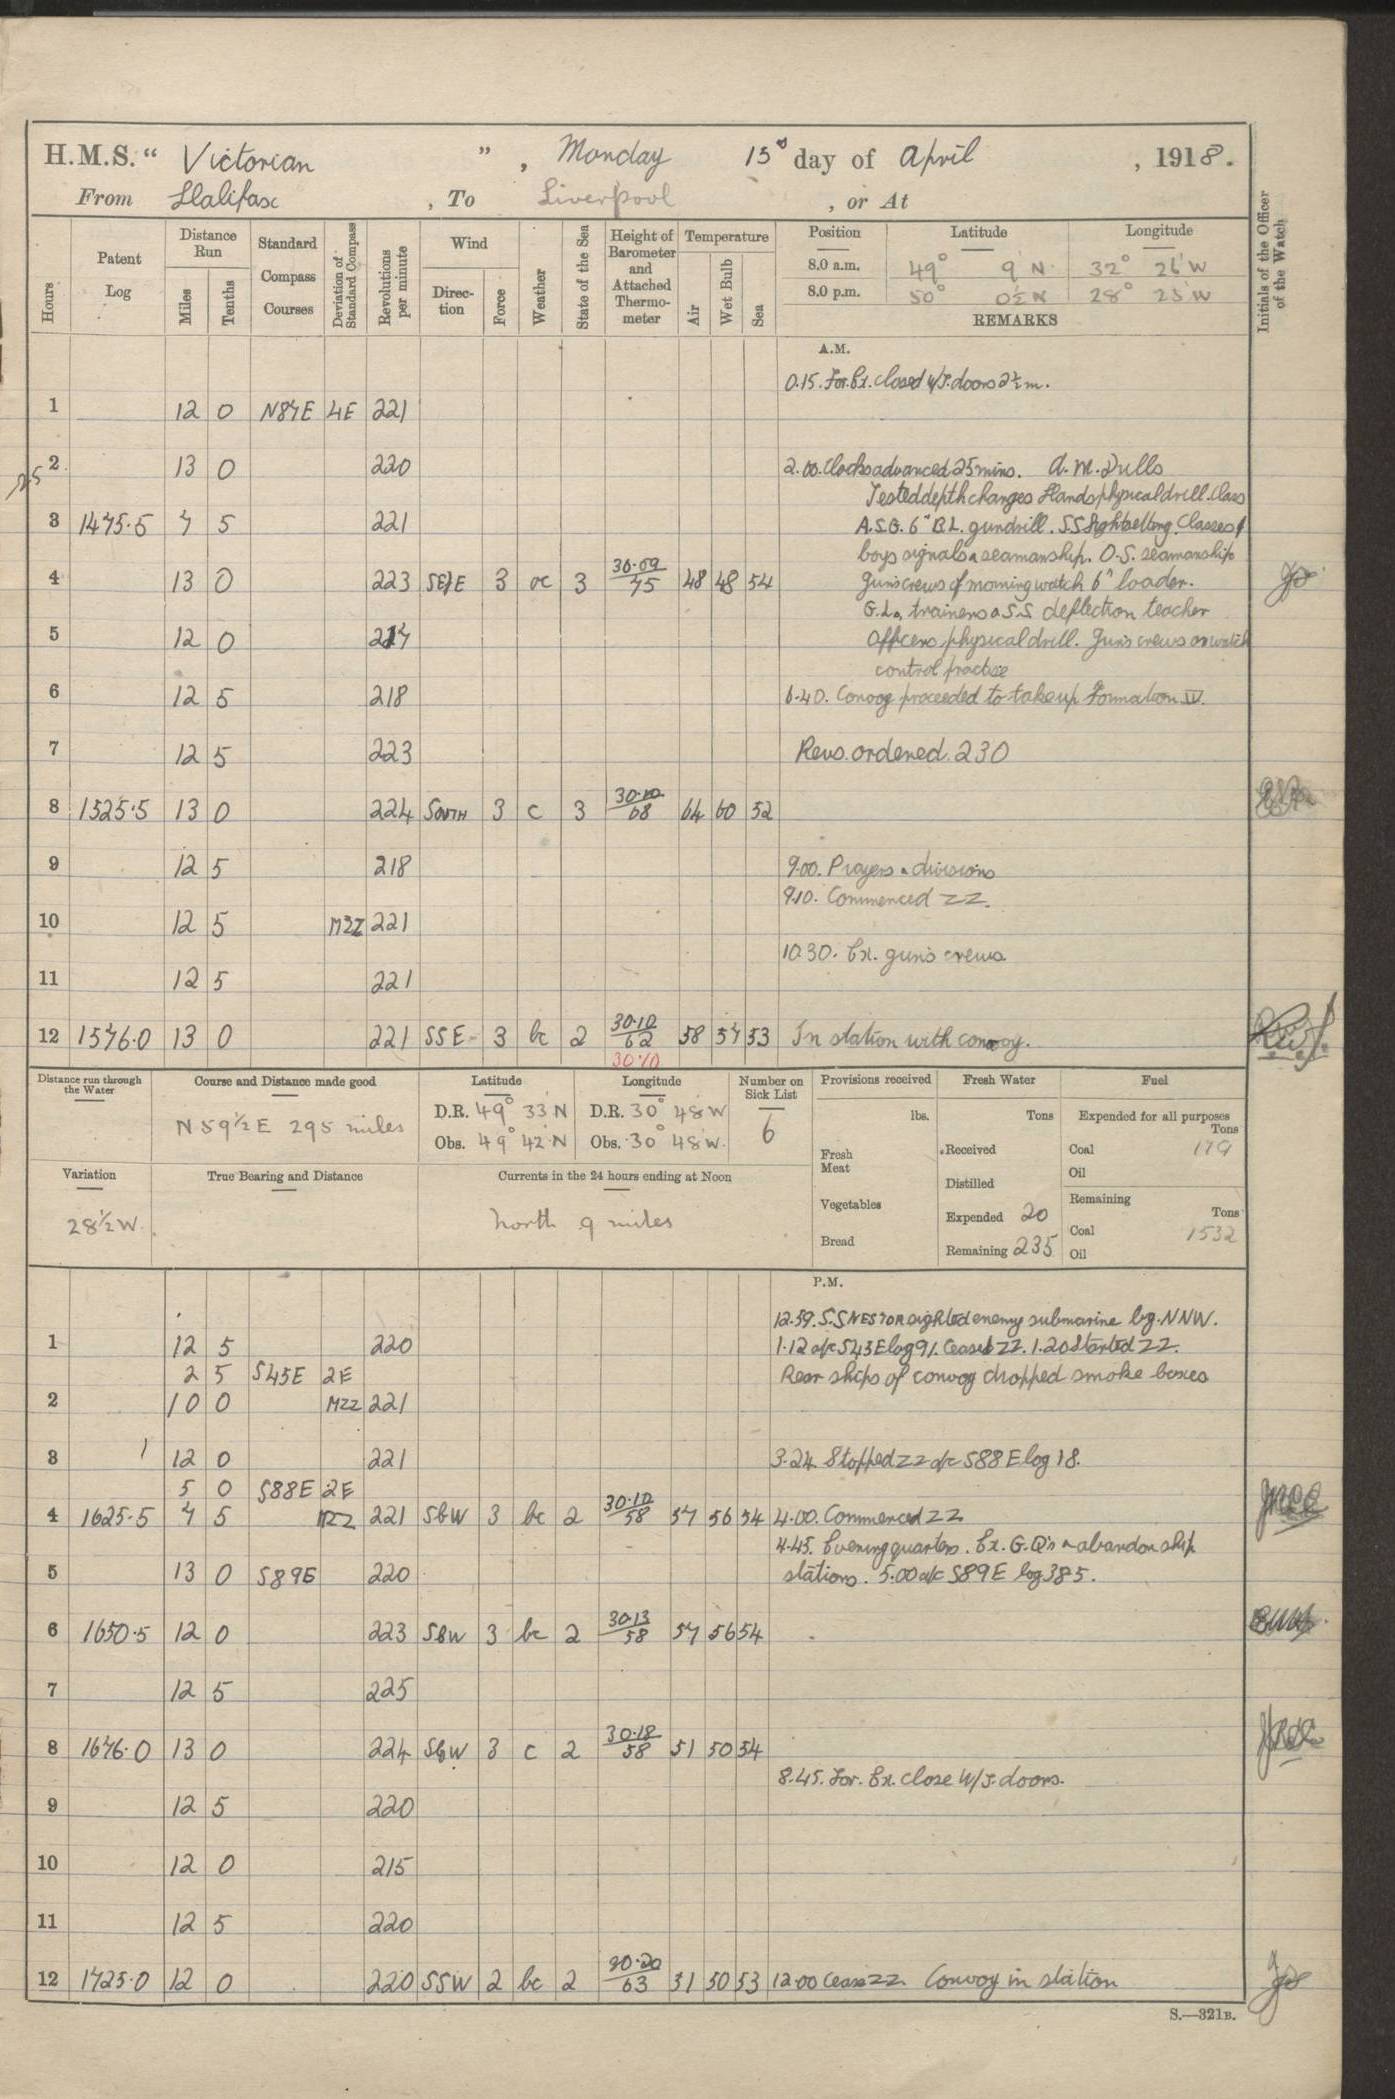 H.M.S. " Victorian " , Monday 15th day of April , 1918.
From Halifax , To Liverpool , or At
Hours
Patent Log
Distance Run
Miles
Tenths
Standard Compass Courses
Deviation of Standard Compass
Revolutions per minute
Wind
Direction
Force
Weather
State of the Sea
Height of Barometer and Attached Thermometer
Temperature
Air
Wet Bulb
Sea
Position Latitude Longitude
8.0 a.m. 49° 9'N 32° 26'W
8.0 p.m. 50° 0½N 28° 25'W
REMARKS
Initials of the Officer of the Watch
A.M.
0.15. For. Ex. Closed W/T. doors 2½m.
1 12 0 N87E 4E 221
2 13 0 220 2.00. Clocks advanced 25mins. A.M. Drills
25
Tested depth charges Hands physical drill. Class
3 1475.5 7 5 221 A.S.G. 6" B.L. gundrill. S.S. Sightsetting. Classes of
boys signals & seamanship. O.S. seamanship
4 13 0 223 SE/E 3 oc 3 30.09/75 48 48 54 guns crews of morning watch 6" loader.
G.L., trainers & S.S. deflection teacher
5 12 0 217 Officers physical drill. Guns crews on watch
control practice
6 12 5 218 6.40. Convoy proceeded to take up Formation IV.
7 12 5 223 Revs. ordered. 230
8 1525.5 13 0 224 SOUTH 3 c 3 30.10/68 64 60 52
9 12 5 218 9.00. Prayers & divisions
9.10. Commenced ZZ.
10 12 5 MZZ 221
10.30. Ex. guns crews
11 12 5 221
12 1576.0 13 0 221 SSE 3 bc 2 30.10/62 58 57 53 In station with convoy.
30.10
Distance run through the Water
Course and Distance made good
N 59½ E 295 miles
Latitude
D.R. 49° 33'N
Obs. 49° 42'N
Longitude
D.R. 30° 48'W
Obs. 30° 48'W.
Number on Sick List
6
Provisions received
lbs.
Fresh Meat
Vegetables
Bread
Fresh Water
Tons
Received
Distilled
Expended 20
Remaining 235
Fuel
Expended for all purposes
Tons
Coal 179
Oil
Remaining
Tons
Coal 1532
Oil
Variation
28½W.
True Bearing and Distance
Currents in the 24 hours ending at Noon
North 9 miles
P.M.
12.59. S.S NESTOR sighted enemy submarine bg. NNW.
1 12 5 220 1.12 a/c S43E log 91. Ceased ZZ. 1.20 Started ZZ.
2 5 S45E 2E Rear ships of convoy dropped smoke boxes
2 10 0 MZZ 221
3 12 0 221 3.24. Stopped ZZ a/c S88E log 18.
5 0 S88E 2E
4 1625.5 7 5 MZZ 221 SbW 3 bc 2 30.10/58 57 56 54 4.00. Commenced ZZ
4.45. Evening quarters. Ex. G.Q's & abandon ship
5 13 0 S89E 220 stations. 5.00 a/c S89E log 385.
6 1650.5 12 0 223 SbW 3 bc 2 30.13/58 57 56 54
7 12 5 225
8 1676.0 13 0 224 SbW 3 c 2 30.18/58 51 50 54
8.45. For. Ex. Close W/T. doors.
9 12 5 220
10 12 0 215
11 12 5 220
12 1725.0 12 0 220 SSW 2 bc 2 30.20/63 51 50 53 12.00 Cease ZZ. Convoy in station
S.—321B.